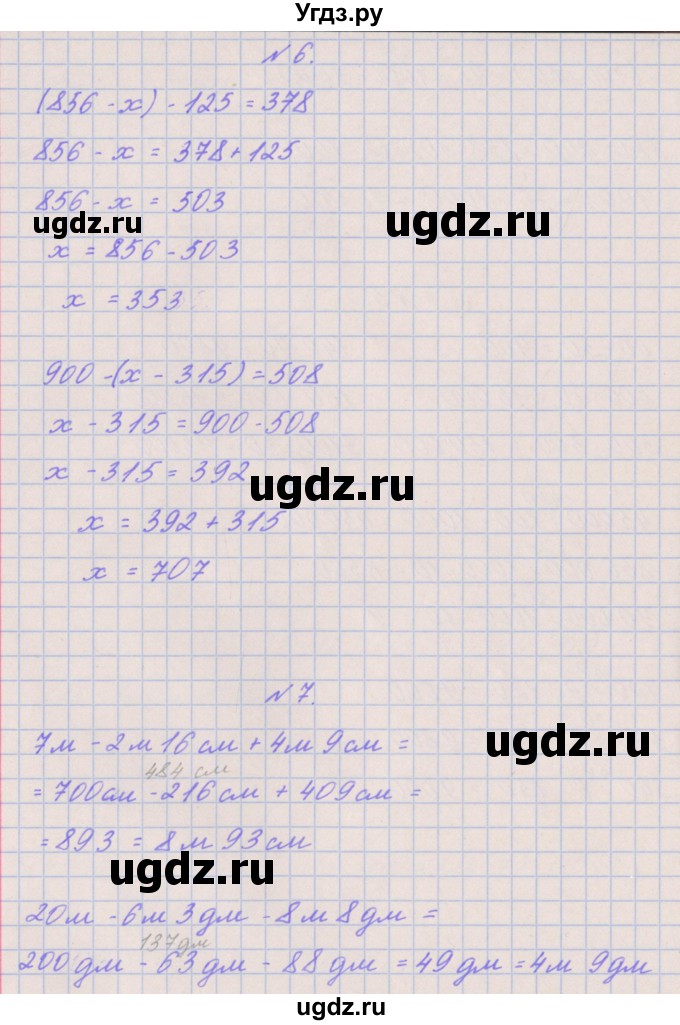 Угдз.ру
№ 6.
(856 - x) - 125 = 378
856 - x = 378 + 125
856 - x = 503
ugdz.ru
ugdz.ru
x = 856 - 503
x = 353
900 - (x - 315) = 508
x - 315 = 900 - 508
x - 315 = 392
ugdz.ru
x = 392 + 315
x = 707
№ 7.
7м - 2м 16см + 4м 9см =
ugdz.ru
484 см
= 700см - 216см + 409см =
= 893 = 8м 93см
ugdz.ru
20м - 6м 3дм - 8м 8дм =
137дм
200дм - 63дм - 88дм = 49дм = 4м 9дм
ugdz.ru